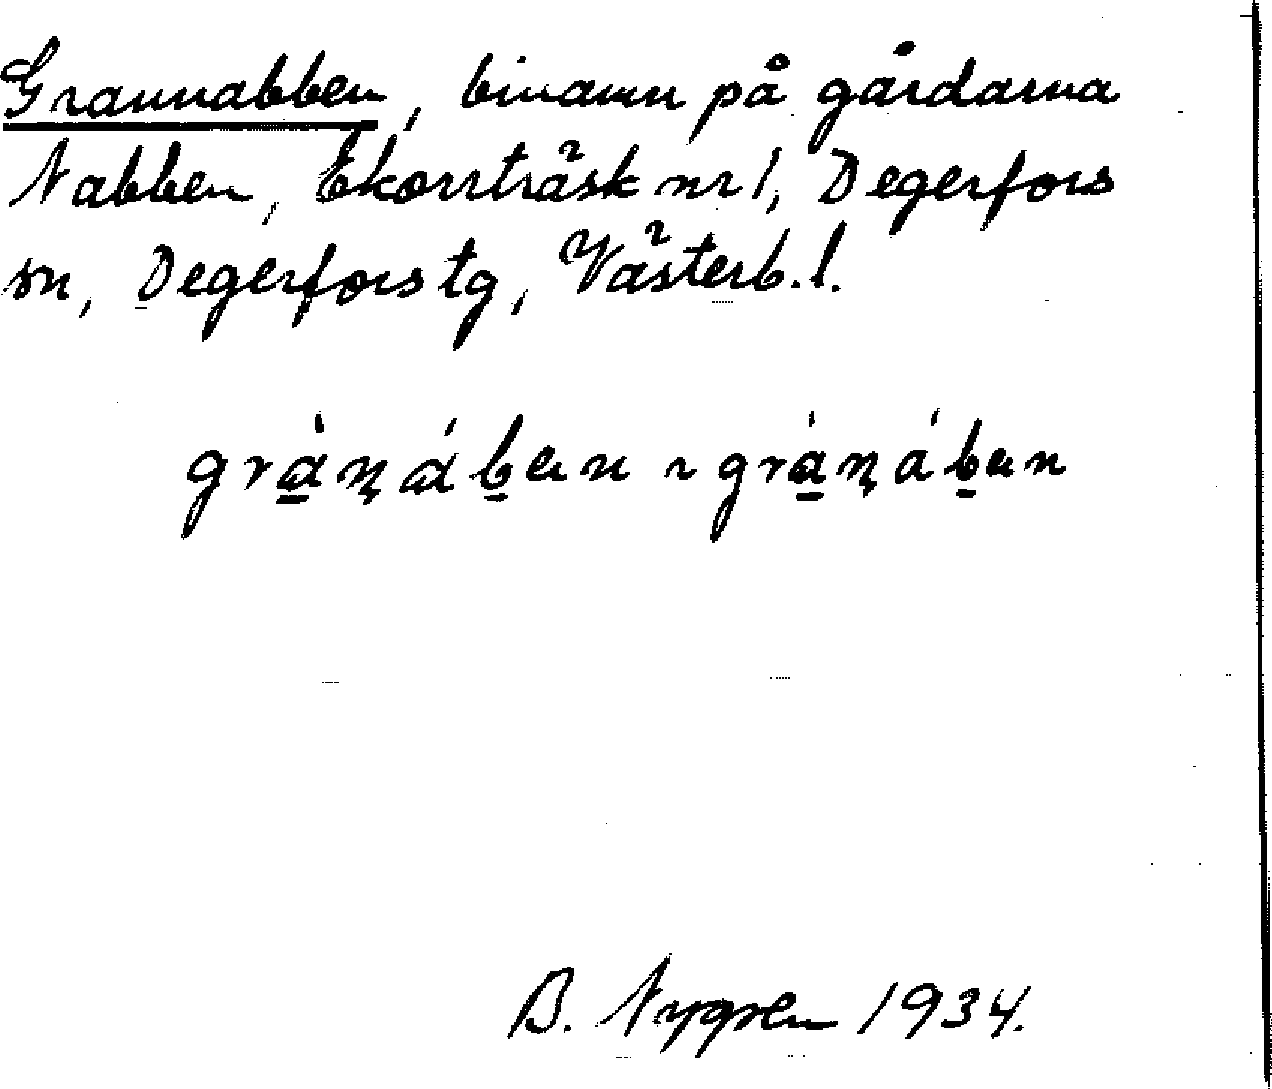 Grannabben, binamn på gårdarna
Nabben, Ekorrträsk nr 1, Degerfors
sn, Degerfors tg, Västerb. l.
grànáben ~ grànáben
B. Nygren 1934.